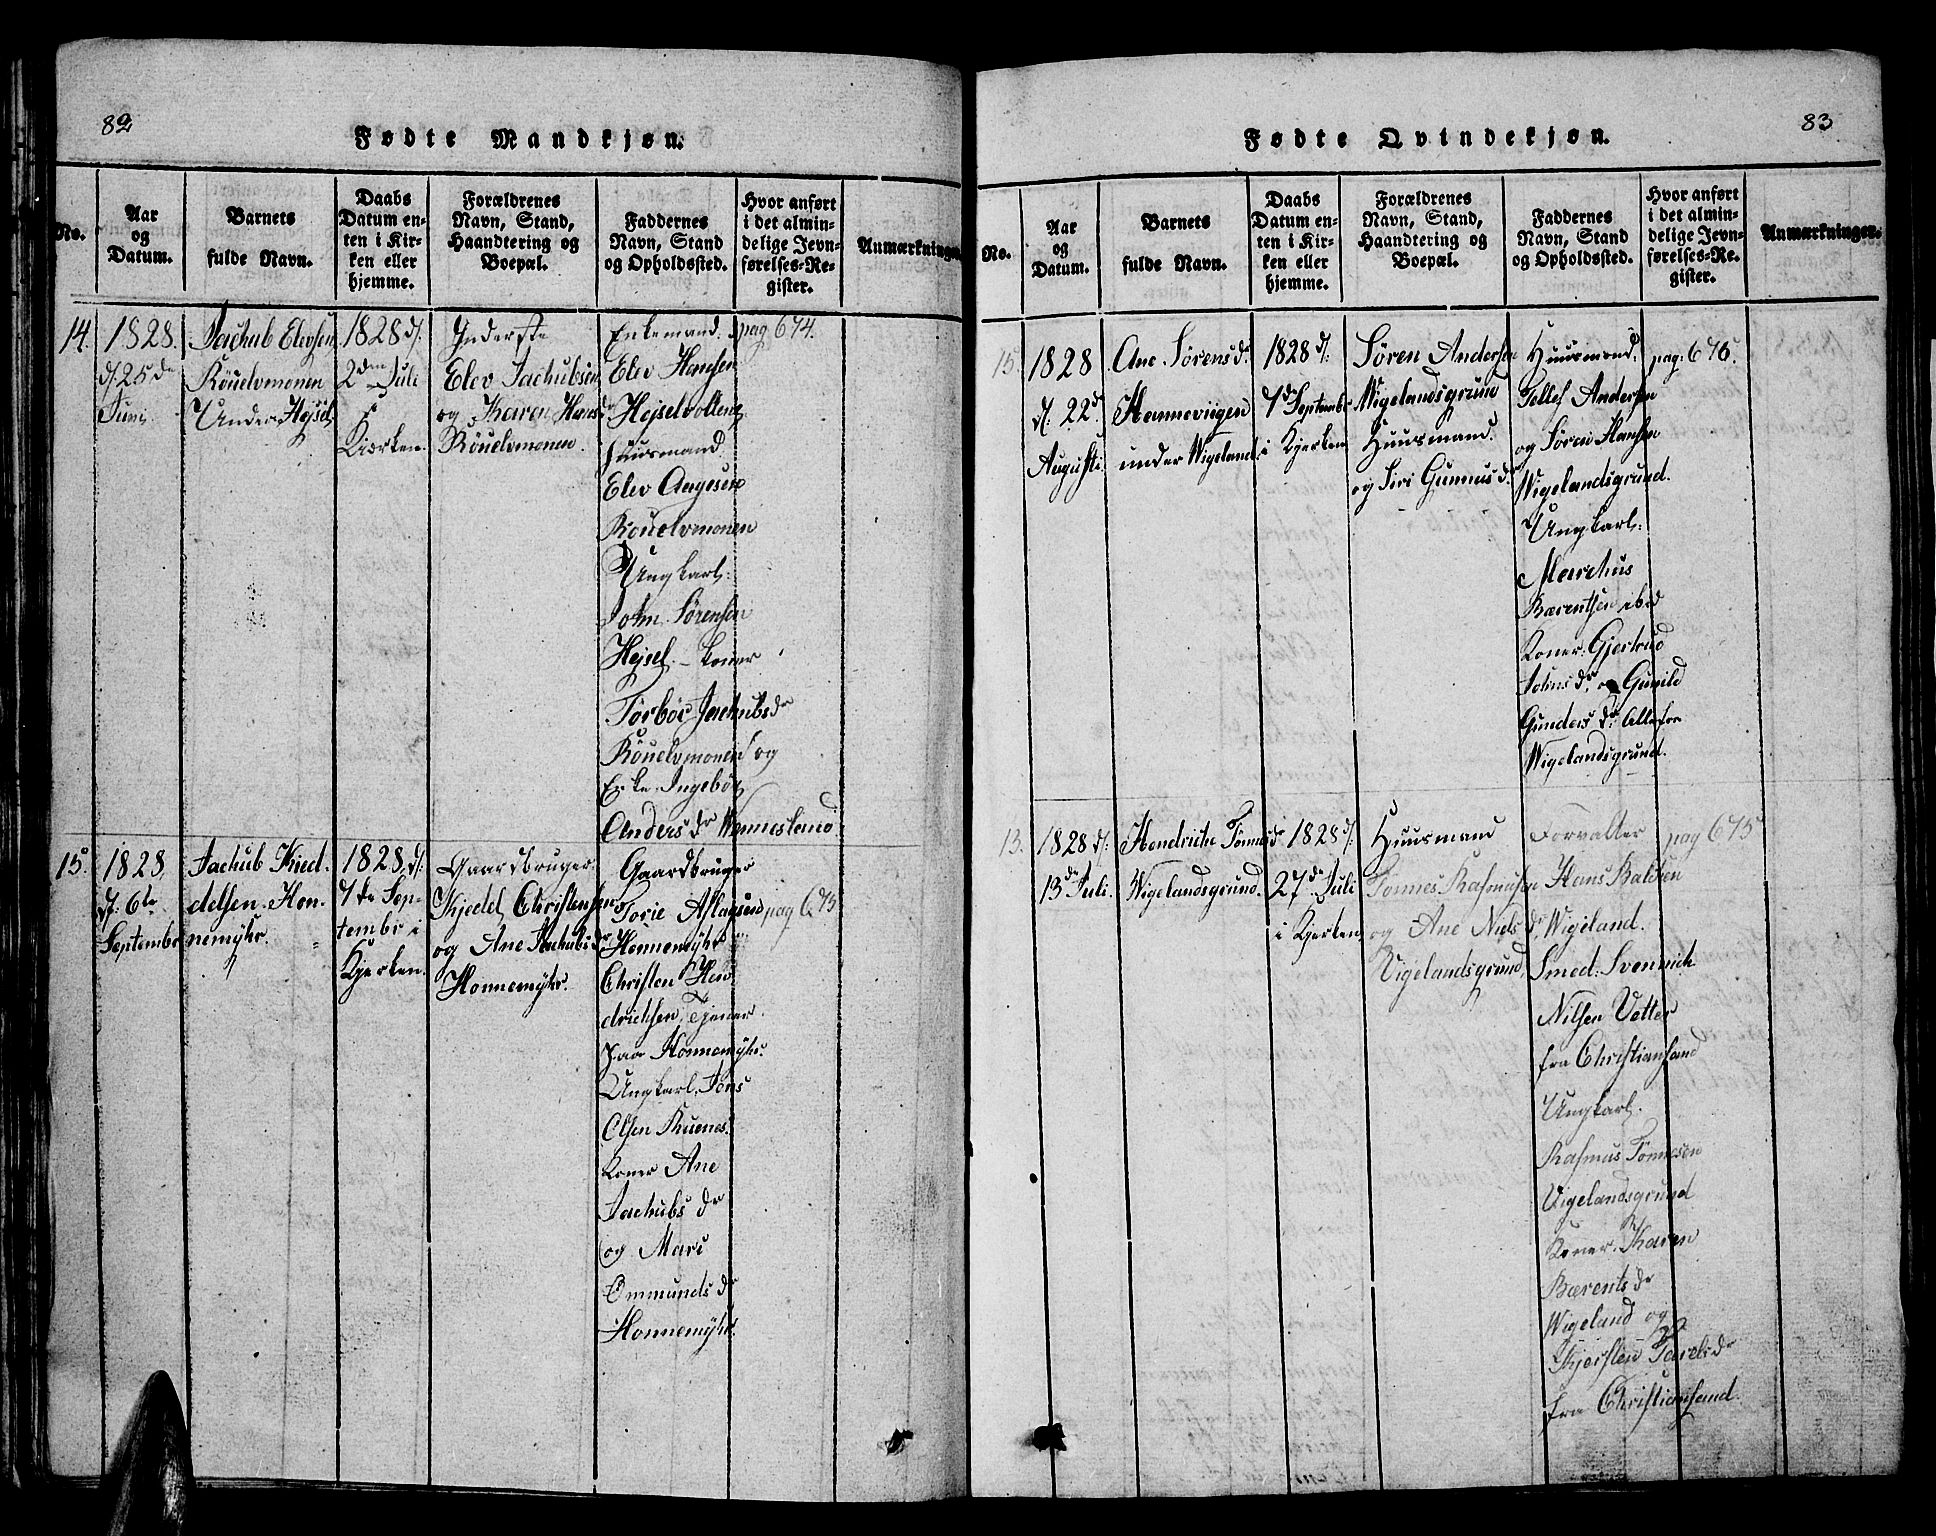 82
Fødte Mandkjøn.
No.
Aar
og
Datum.
Barnets
fulde Navn.
Daabs
Datum en-
ten i Kir-
ken eller
hjemme.
Forældrenes
Navn, Stand,
Haandtering og
Boepæl.
Faddernes
Navn, Stand
og Opholdssted.
Hvor anført
i det almin-
delige Jevn-
førelses-Re-
gister.
Anmærkninger.
14.
1828.
d. 25de
Juni
Jachub Elevsen
Röuelvmonen
Under Hejsel
1828 d:
2den Juli
i
Kiørken.
Inderste
Elev Jachubsen
og Karen Hansdr
Röuelvmonen.
Enkemand.
Elev Hansen
Hejselvollene
Huusmand
Elev Aagesen
Röuelvmonen
Ungkarl:
John Sørensen
Hejsel. - Koner
Torbor Jachubsdr
Röuelvmonen og
Enke Ingebor
Andersdr Wenneslend
pag 674.
15.
1828.
d: 6te
Septembr
Jachub Kied-
delsen Hon-
nemÿhr.
1828, d:
7de Sep-
tembr i
Kjerken.
Gaardbruger
Kjedel Christensen
og Ane Jachubsdr
Honnemÿhr.
Gaardbruger
Torie Aslagsen
Honnemÿhr
Christen Hen-
drichsen, Tjener
paa Honnemÿhr.
Ungkarl Jens
Olsen Kuenes.
Koner Ane
Jachubsdr
og Mari
Ommundsdr
Honnemÿhr.
pag 675
83
Fødte Qvindekjøn.
No.
Aar
og
Datum.
Barnets
fulde Navn.
Daabs
Datum en-
ten i Kir-
ken eller
hjemme.
Forældrenes
Navn, Stand,
Haandtering og
Boepæl.
Faddernes
Navn, Stand
og Opholdssted.
Hvor anført
i det almin-
delige Jevn-
førelses-Re-
gister.
Anmærkninger.
15.
1828
d: 22de
Augusti
Ane Sørensdr
Hannevigen
under Wigeland.
1828 d:
7de Septembr
i Kjerken
Søren Andersen
Wigelandsgrund
Huusmand.
og Siri Gunnusdr
Huusmand.
Tellef Andersen
og Søren Hansen
Wigelandsgrund.
Ungkarl:
Marchus
Bærentsen ibid
Koner: Gjertrud
Johnsdr, og Gunild
Gundersdr: Alle for
Wigelandsgrund.
pag: 676
13.
1828 d:
13de Juli.
Hendriche Tönnesdr
Wigelandsgrund.
1828 d:
27de Juli
i Kjerken
Huusmand
Tönnes Rasmusen
og Ane Nielsdr.
Vigelandsgrund,
Forvalter
Hans Baltsen
Wigeland.
Smed: Svennich
Nilsen Vetter
fra Christiansand
Ungkarl.
Rasmus Tönnesen
Vigelandsgrund
Koner. Karen
Bærentsdr
Wigeland og
Kjersten Tarelsdr
fra Christiansand.
pag 675